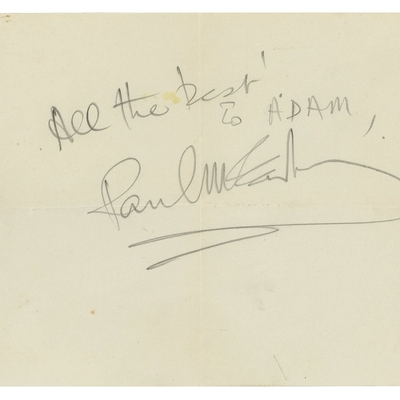 All the 'best'
to ADAM,
Paul McCartney